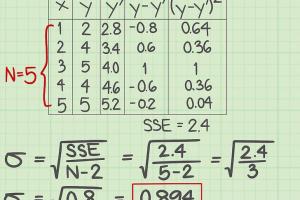 x y y' y-y' (y-y')²
1 2 2.8 -0.8 0.64
2 4 3.4 0.6 0.36
3 5 4.0 1 1
4 4 4.6 -0.6 0.36
5 5 5.2 -0.2 0.04
N=5
SSE = 2.4
σ = √SSE/N-2 = √2.4/5-2 = √2.4/3
σ = √0.8 = 0.894